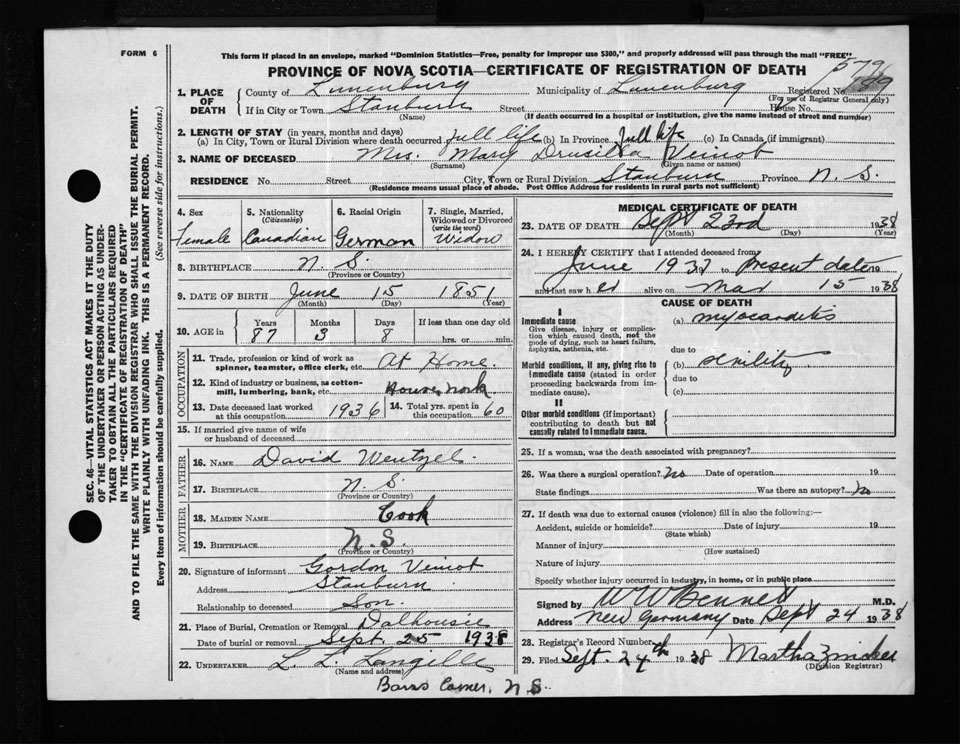 FORM 6
This form if placed in an envelope, marked "Dominion Statistics—Free, penalty for improper use $300," and properly addressed will pass through the mail "FREE"
PROVINCE OF NOVA SCOTIA—CERTIFICATE OF REGISTRATION OF DEATH
579
1. PLACE OF DEATH
County of Lunenburg Municipality of Lunenburg Registered No.
(For use of Registrar General only)
If in City or Town Stanburn Street House No.
(Name) (If death occurred in a hospital or institution, give the name instead of street and number)
2. LENGTH OF STAY (in years, months and days)
(a) In City, Town or Rural Division where death occurred full life (b) In Province full life (c) In Canada (if immigrant)
3. NAME OF DECEASED Mrs. Mary Drusilla Veinot
(Surname) (Given name or names)
RESIDENCE No. Street City, Town or Rural Division Stanburn Province N. S.
(Residence means usual place of abode. Post Office Address for residents in rural parts not sufficient)
4. Sex Female
5. Nationality (Citizenship) Canadian
6. Racial Origin German
7. Single, Married, Widowed or Divorced (write the word) Widow
8. BIRTHPLACE N. S.
(Province or Country)
9. DATE OF BIRTH June 15 1851
(Month) (Day) (Year)
10. AGE in Years 87 Months 3 Days 8 If less than one day old hrs. or min.
OCCUPATION
11. Trade, profession or kind of work as spinner, teamster, office clerk, etc. At Home.
12. Kind of industry or business, as cotton-mill, lumbering, bank, etc. Housework
13. Date deceased last worked at this occupation 1936
14. Total yrs. spent in this occupation 60
15. If married give name of wife or husband of deceased
FATHER
16. NAME David Wentzel
17. BIRTHPLACE N. S.
(Province or Country)
MOTHER
18. MAIDEN NAME Cook
19. BIRTHPLACE N. S.
(Province or Country)
20. Signature of informant Gordon Veinot
Address Stanburn
Relationship to deceased Son.
21. Place of Burial, Cremation or Removal Dalhousie
Date of burial or removal Sept. 25 1938
22. UNDERTAKER L. L. Langille
(Name and address)
Barss Corner, N. S.
MEDICAL CERTIFICATE OF DEATH
23. DATE OF DEATH Sept 23rd 1938
(Month) (Day) (Year)
24. I HEREBY CERTIFY that I attended deceased from
June 1937 to present date 19
and last saw her alive on Mar 15 1938
CAUSE OF DEATH
I
Immediate cause
Give disease, injury or complication which caused death, not the mode of dying, such as heart failure, asphyxia, asthenia, etc.
(a) myocarditis
due to
Morbid conditions, if any, giving rise to immediate cause (stated in order proceeding backwards from immediate cause).
(b) senility
due to
(c)
II
Other morbid conditions (if important) contributing to death but not causally related to immediate cause.
25. If a woman, was the death associated with pregnancy?
26. Was there a surgical operation? No Date of operation 19
State findings Was there an autopsy? No
27. If death was due to external causes (violence) fill in also the following:—
Accident, suicide or homicide? Date of injury 19
(State which)
Manner of injury
(How sustained)
Nature of injury
Specify whether injury occurred in industry, in home, or in public place
Signed by W W Bennett M.D.
Address New Germany Date Sept 24 1938
28. Registrar's Record Number
29. Filed Sept. 24th 1938 Martha Zwicker
(Division Registrar)
SEC. 46—VITAL STATISTICS ACT MAKES IT THE DUTY
OF THE UNDERTAKER OR PERSON ACTING AS UNDER-
TAKER TO OBTAIN ALL THE PARTICULARS REQUIRED
IN THE "CERTIFICATE OF REGISTRATION OF DEATH"
AND TO FILE THE SAME WITH THE DIVISION REGISTRAR WHO SHALL ISSUE THE BURIAL PERMIT.
WRITE PLAINLY WITH UNFADING INK. THIS IS A PERMANENT RECORD.
Every item of information should be carefully supplied. (See reverse side for instructions.)